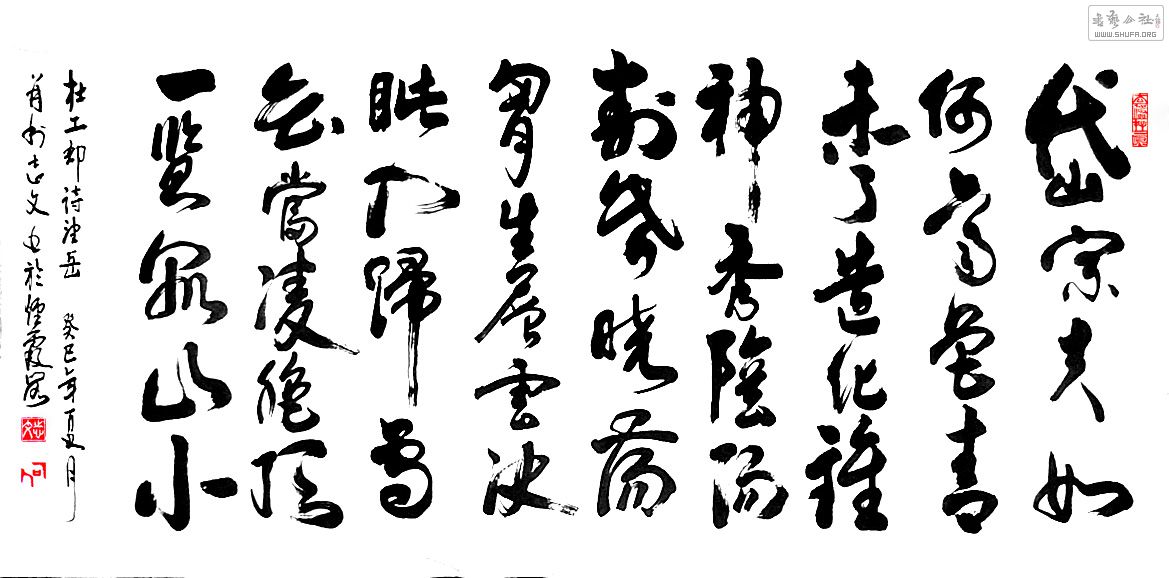 岱宗夫如
何齊魯青
未了造化鍾
神秀陰陽
割昏曉蕩
胷生層雲決
眥入歸鳥
會當凌絕頂
一覽眾山小
杜工部詩望岳 癸巳年夏月
志文书於煙霞
書藝公社
WWW.SHUFA.ORG